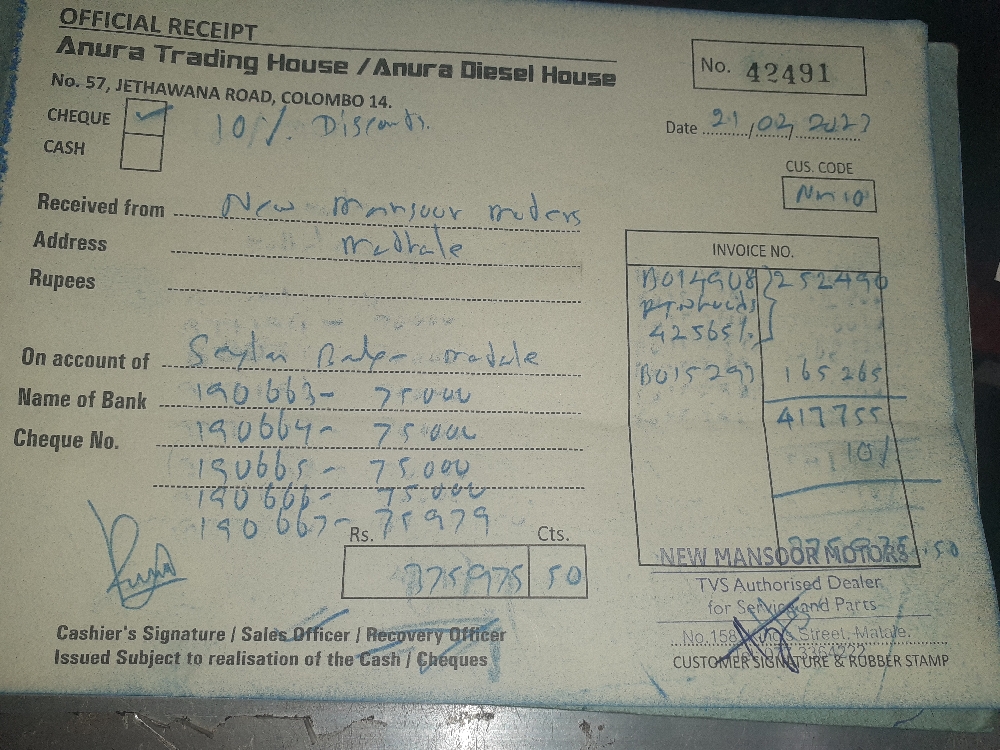 OFFICIAL RECEIPT
Anura Trading House / Anura Diesel House
No. 57, JETHAWANA ROAD, COLOMBO 14.
No. 42491
CHEQUE
10% Discount.
CASH
Date 21/02/2023
CUS. CODE
Nm 10
Received from New Mansoor
Address
Rupees
INVOICE NO.
B014908 252490
42565/
B015297 165265
417755
10/
On account of
Name of Bank 190663- 75000
Cheque No. 190664- 75000
190665- 75.000
190666- 75000
190667- 75979
Rs. Cts.
375975 50
375975.50
NEW MANSOOR MOTORS
TVS Authorised Dealer
for Service and Parts
No.158, King's Street, Matale.
Cashier's Signature / Sales Officer / Recovery Officer
Issued Subject to realisation of the Cash / Cheques
CUSTOMER SIGNATURE & RUBBER STAMP